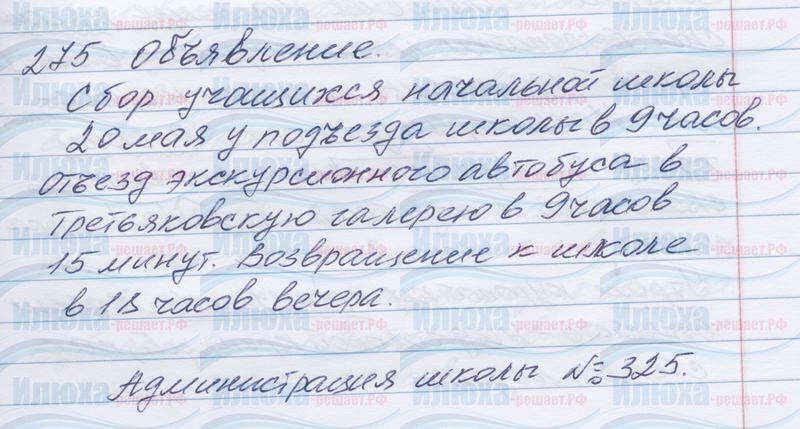 275 Объявление.
Сбор учащихся начальной школы
20 мая у подъезда школы в 9 часов.
Отъезд экскурсионного автобуса в
Третьяковскую галерею в 9 часов
15 минут. Возвращение к школе
в часов вечера.
Администрация школы № 325.
Илюха-решает.РФ